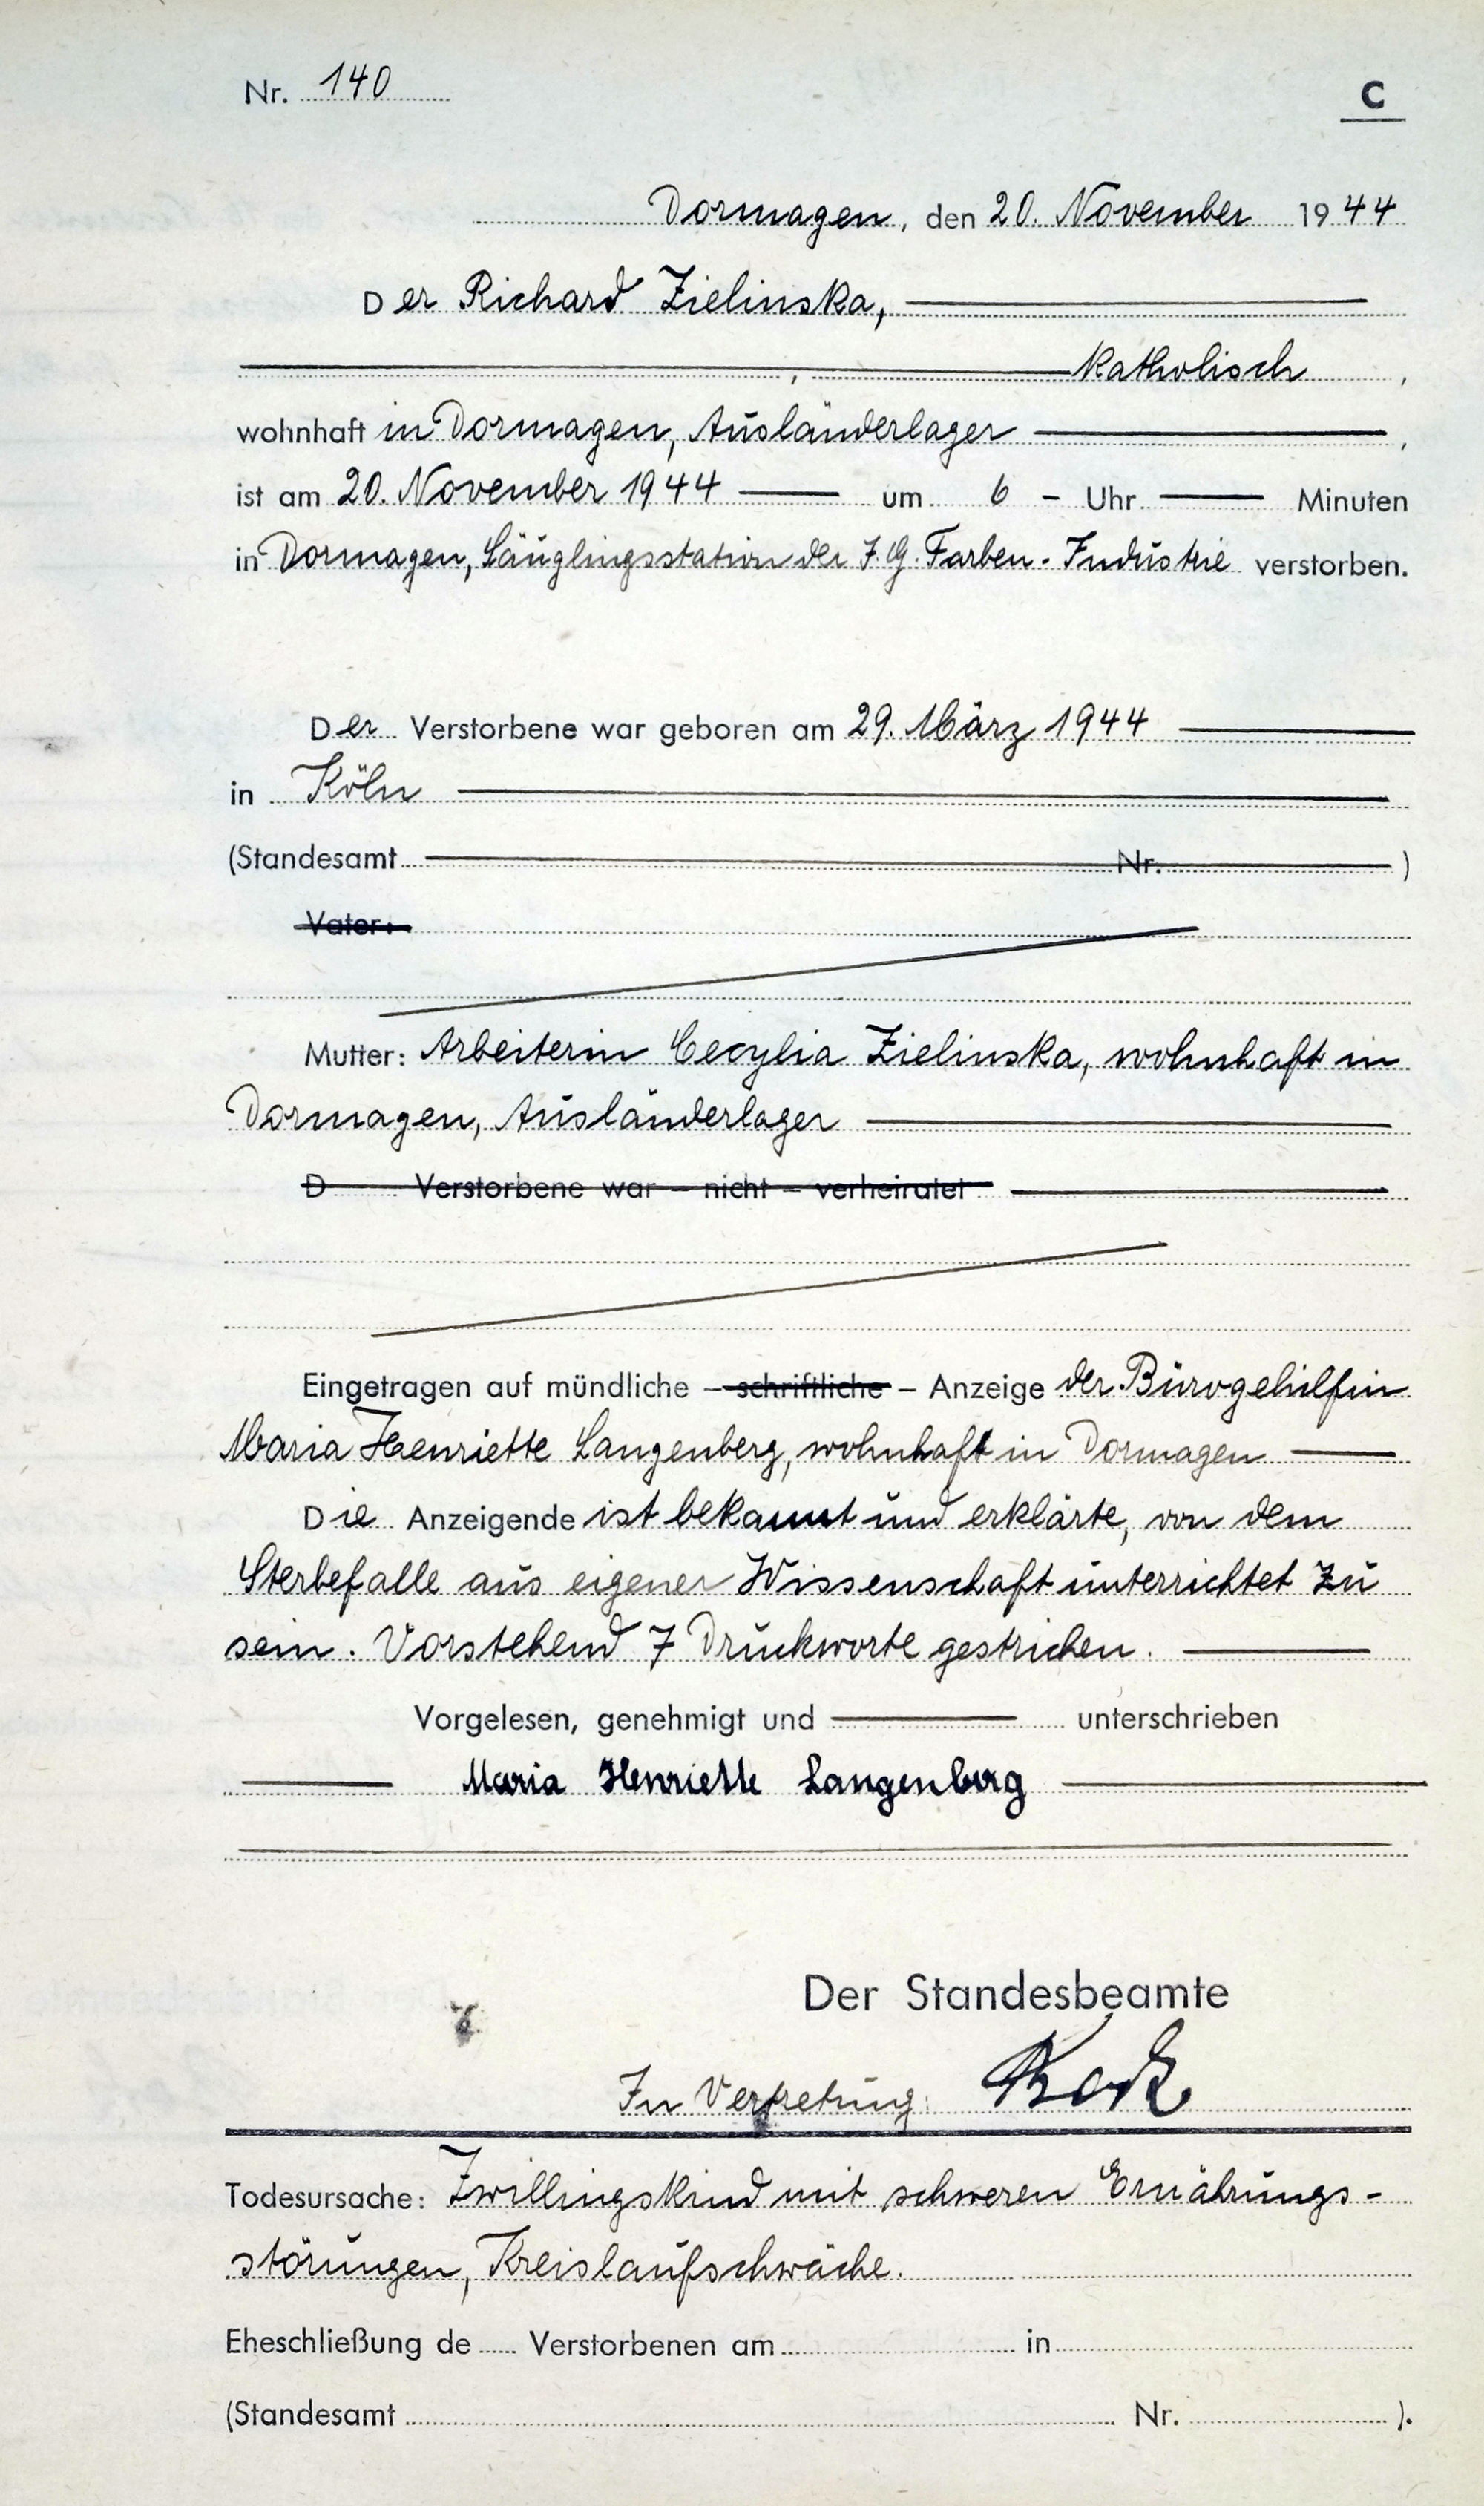 Nr. 140
C
Dormagen, den 20. November 1944
Der Richard Zielinska,
, katholisch,
wohnhaft in Dormagen, Ausländerlager,
ist am 20. November 1944 um 6 - Uhr Minuten
in Dormagen, Säuglingsstation der I.G. Farben-Industrie verstorben.
Der Verstorbene war geboren am 29. März 1944
in Köln
(Standesamt Nr. )
Vater:
Mutter: Arbeiterin Cecylia Zielinska, wohnhaft in
Dormagen, Ausländerlager
D Verstorbene war – nicht – verheiratet
Eingetragen auf mündliche – schriftliche – Anzeige der Bürogehilfin
Maria Henriette Langenberg, wohnhaft in Dormagen
Die Anzeigende ist bekannt und erklärte, von dem
Sterbefalle aus eigener Wissenschaft unterrichtet zu
sein. Vorstehend 7 Druckworte gestrichen.
Vorgelesen, genehmigt und unterschrieben
Maria Henriette Langenberg
Der Standesbeamte
In Vertretung:
Todesursache: Zwillingskind mit schweren Ernährungs-
störungen, Kreislaufschwäche.
Eheschließung de Verstorbenen am in
(Standesamt Nr. ).